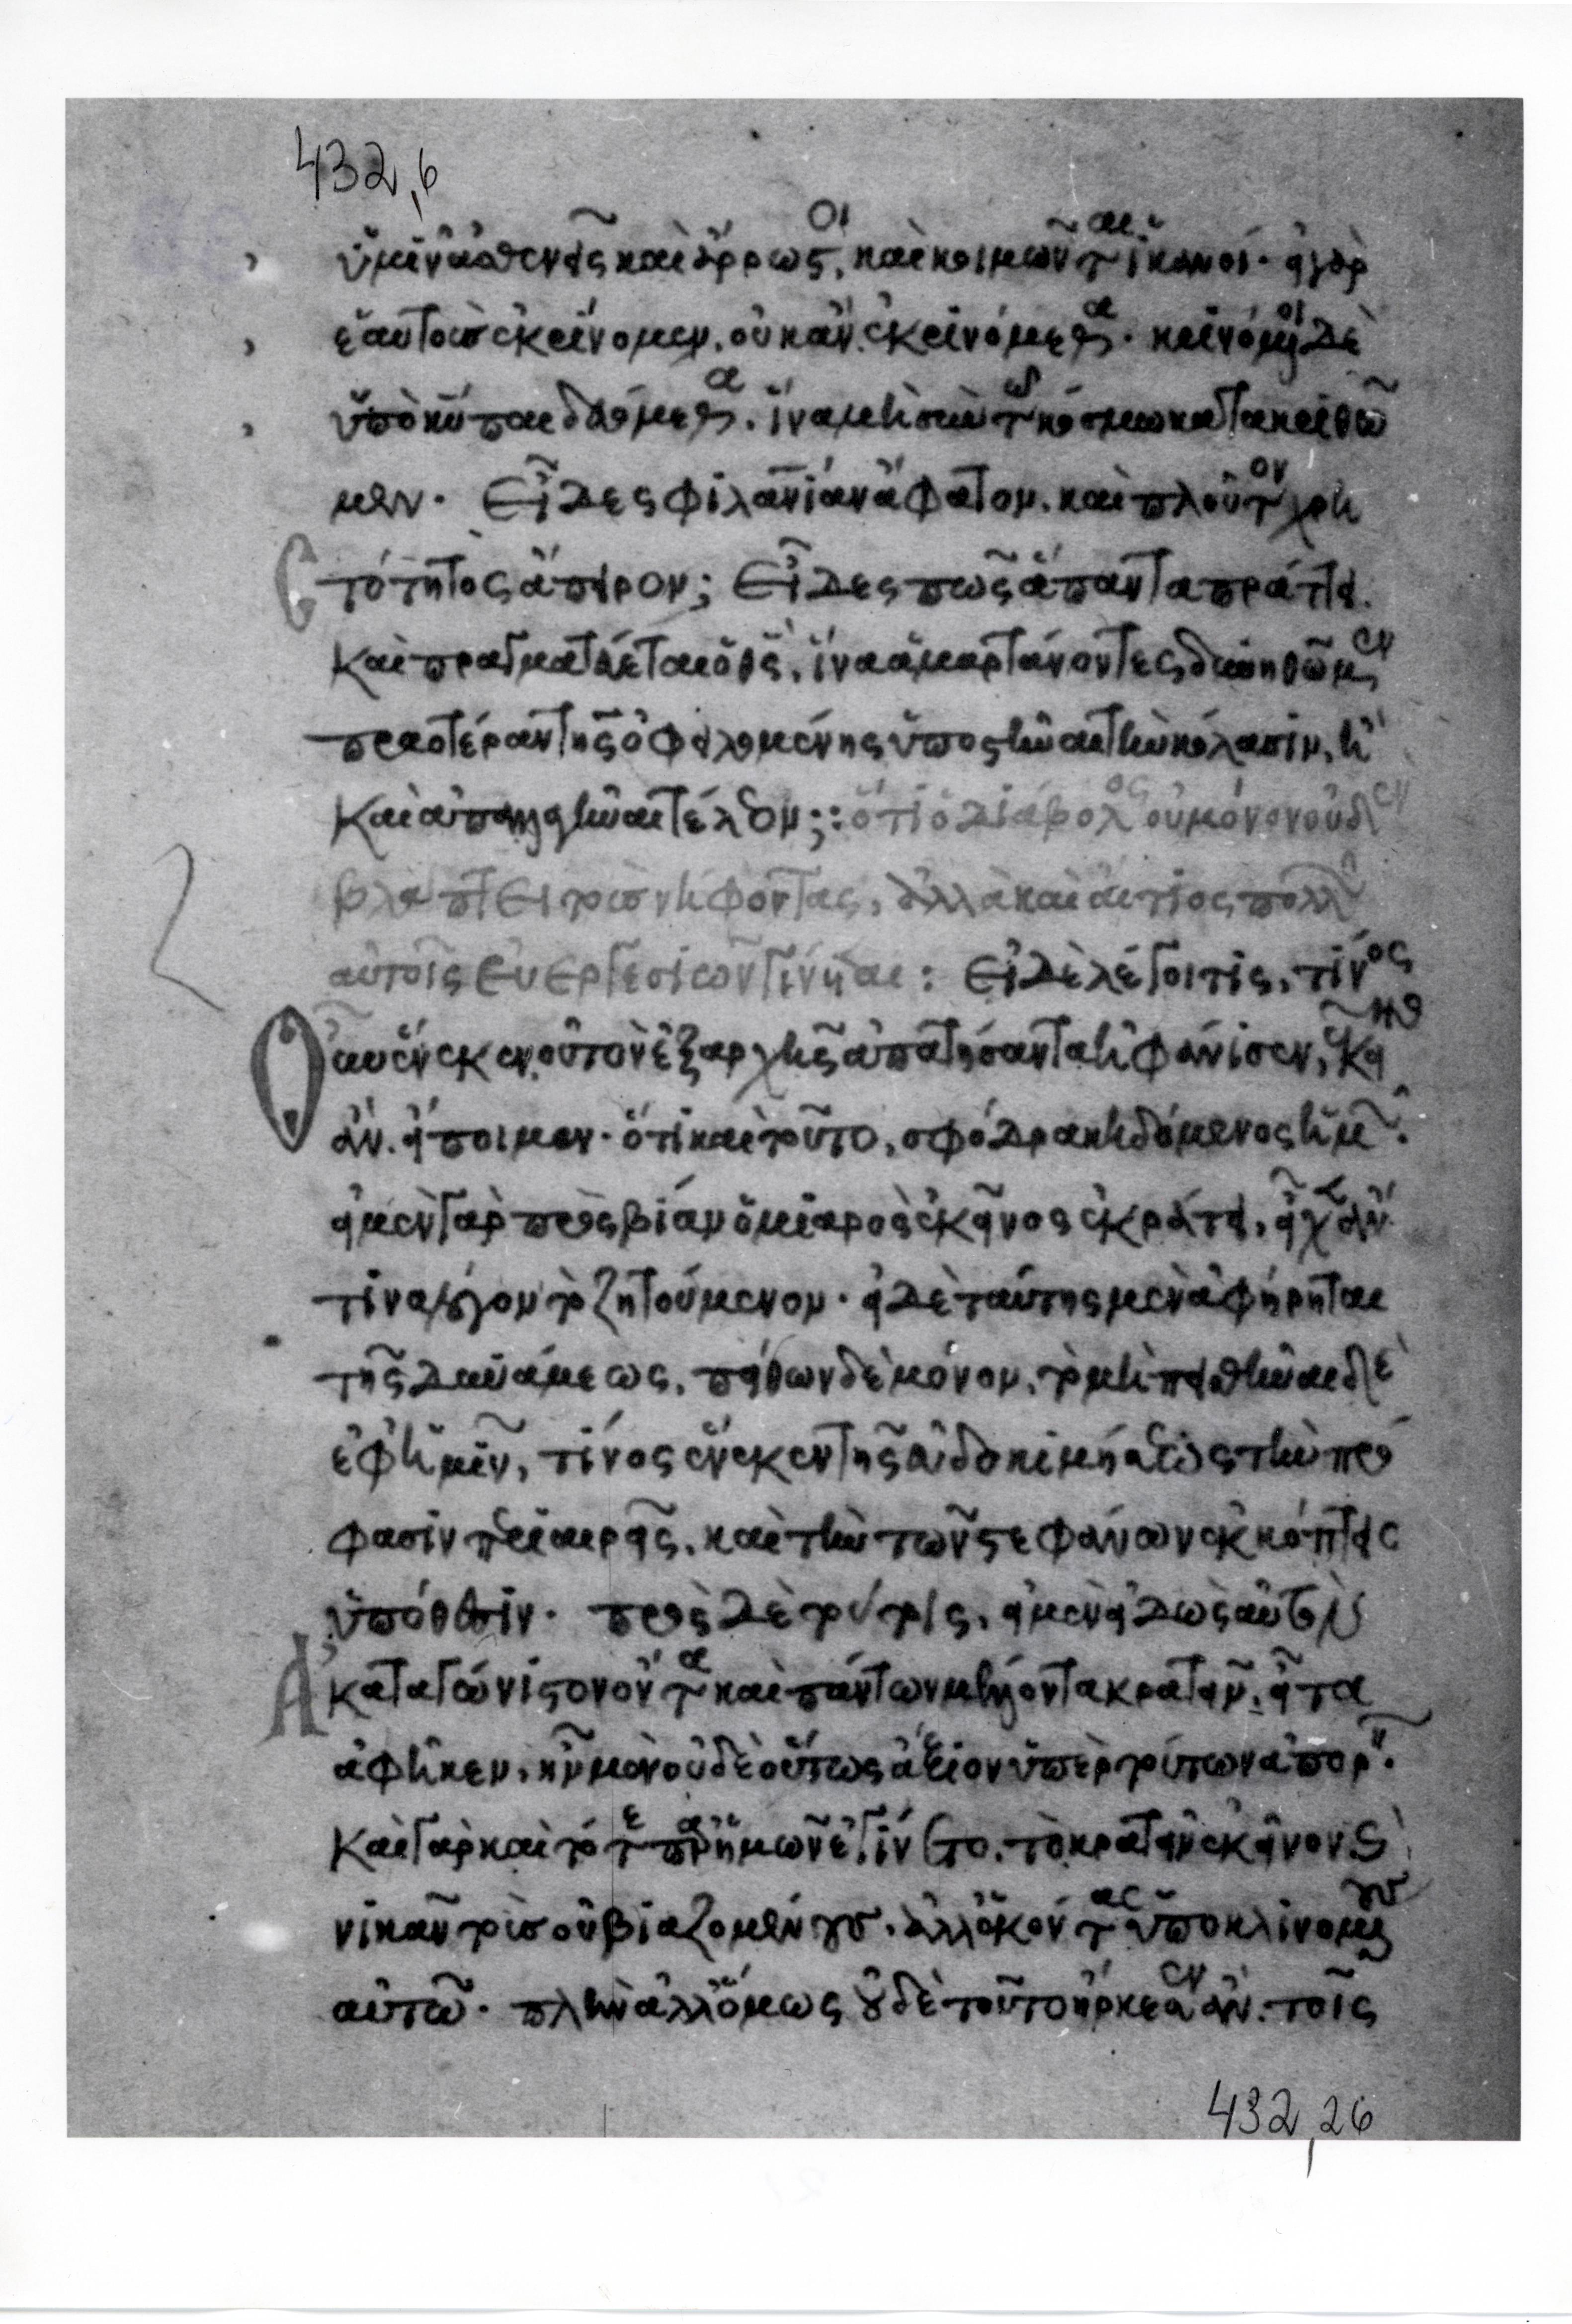 432,6
ὑμῖν ἀσθενεῖς καὶ ἄρρωστοι, καὶ κοιμῶνται ἱκανοί· εἰ γὰρ
ἑαυτοὺς ἐκρίνομεν, οὐκ ἂν ἐκρινόμεθα· κρινόμενοι δὲ
ὑπὸ κυ παιδευόμεθα, ἵνα μὴ σὺν τῷ κόσμω κατακριθῶ
μεν· Εἶδες φιλανίαν ἄφατον, καὶ πλοῦτον χρη
στότητος ἄπειρον; Εἶδες πῶς ἅπαντα πράττει
καὶ πραγματεύεται ὁ θς, ἵνα ἁμαρτάνοντες δυνηθῶμεν
πραοτέραν τῆς ὀφειλομένης ὑποστῆναι τὴν κόλασιν, ἢ
καὶ ἀπαλλαγῆναι τέλεον; : ὅτι ὁ διάβολος οὐ μόνον οὐδὲν
βλάπτει τοὺς νήφοντας, ἀλλὰ καὶ αἴτιος πολλῶν
αὐτοῖς εὐεργεσιῶν γίνεται : Εἰ δὲ λέγοι τις, τίνος
οὖν ἕνεκεν οὐ τὸν ἐξαρχῆς ἀπατήσαντα ἠφάνισεν,
ἂν εἴποιμεν· ὅτι καὶ τοῦτο, σφόδρα κηδόμενος ἡμῶν·
εἰ μὲν γὰρ πρὸς βίαν ὁ μιαρὸς ἐκεῖνος ἐκράτει, εἶχεν ἄν
τινα λόγον τὸ ζητούμενον· εἰ δὲ ταύτης μὲν ἀφήρηται
τῆς δυνάμεως, πείθων δὲ μόνον, τὸ μὴ πεισθῆναι δὲ
ἐφ ἡμῖν, τίνος ἕνεκεν τῆς εὐδοκιμήσεως τὴν πρό
φασιν περιαιρεῖς, καὶ τὴν τῶν στεφάνων ἐκκόπτεις
ὑπόθεσιν· πρὸς δὲ τούτοις, εἰ μὲν εἰδὼς αὐτὸν
ἀκαταγώνιστον ὄντα καὶ πάντων μέλλοντα κρατεῖν, εἶτα
ἀφῆκεν, ἦν μὲν οὐδὲ οὕτως ἄξιον ὑπὲρ τούτων ἀπορεῖν·
καὶ γὰρ καὶ τότε παρ ἡμῶν ἐγίνετο, τὸ κρατεῖν ἐκεῖνον καὶ
νικᾶν τοὺς οὐ βιαζομένους, ἀλλ ἑκόντας ὑποκλινομένους
αὐτῶ· πλὴν ἀλλ ὅμως οὐδὲ τοῦτο ἤρκεσεν ἂν τοῖς
432,26